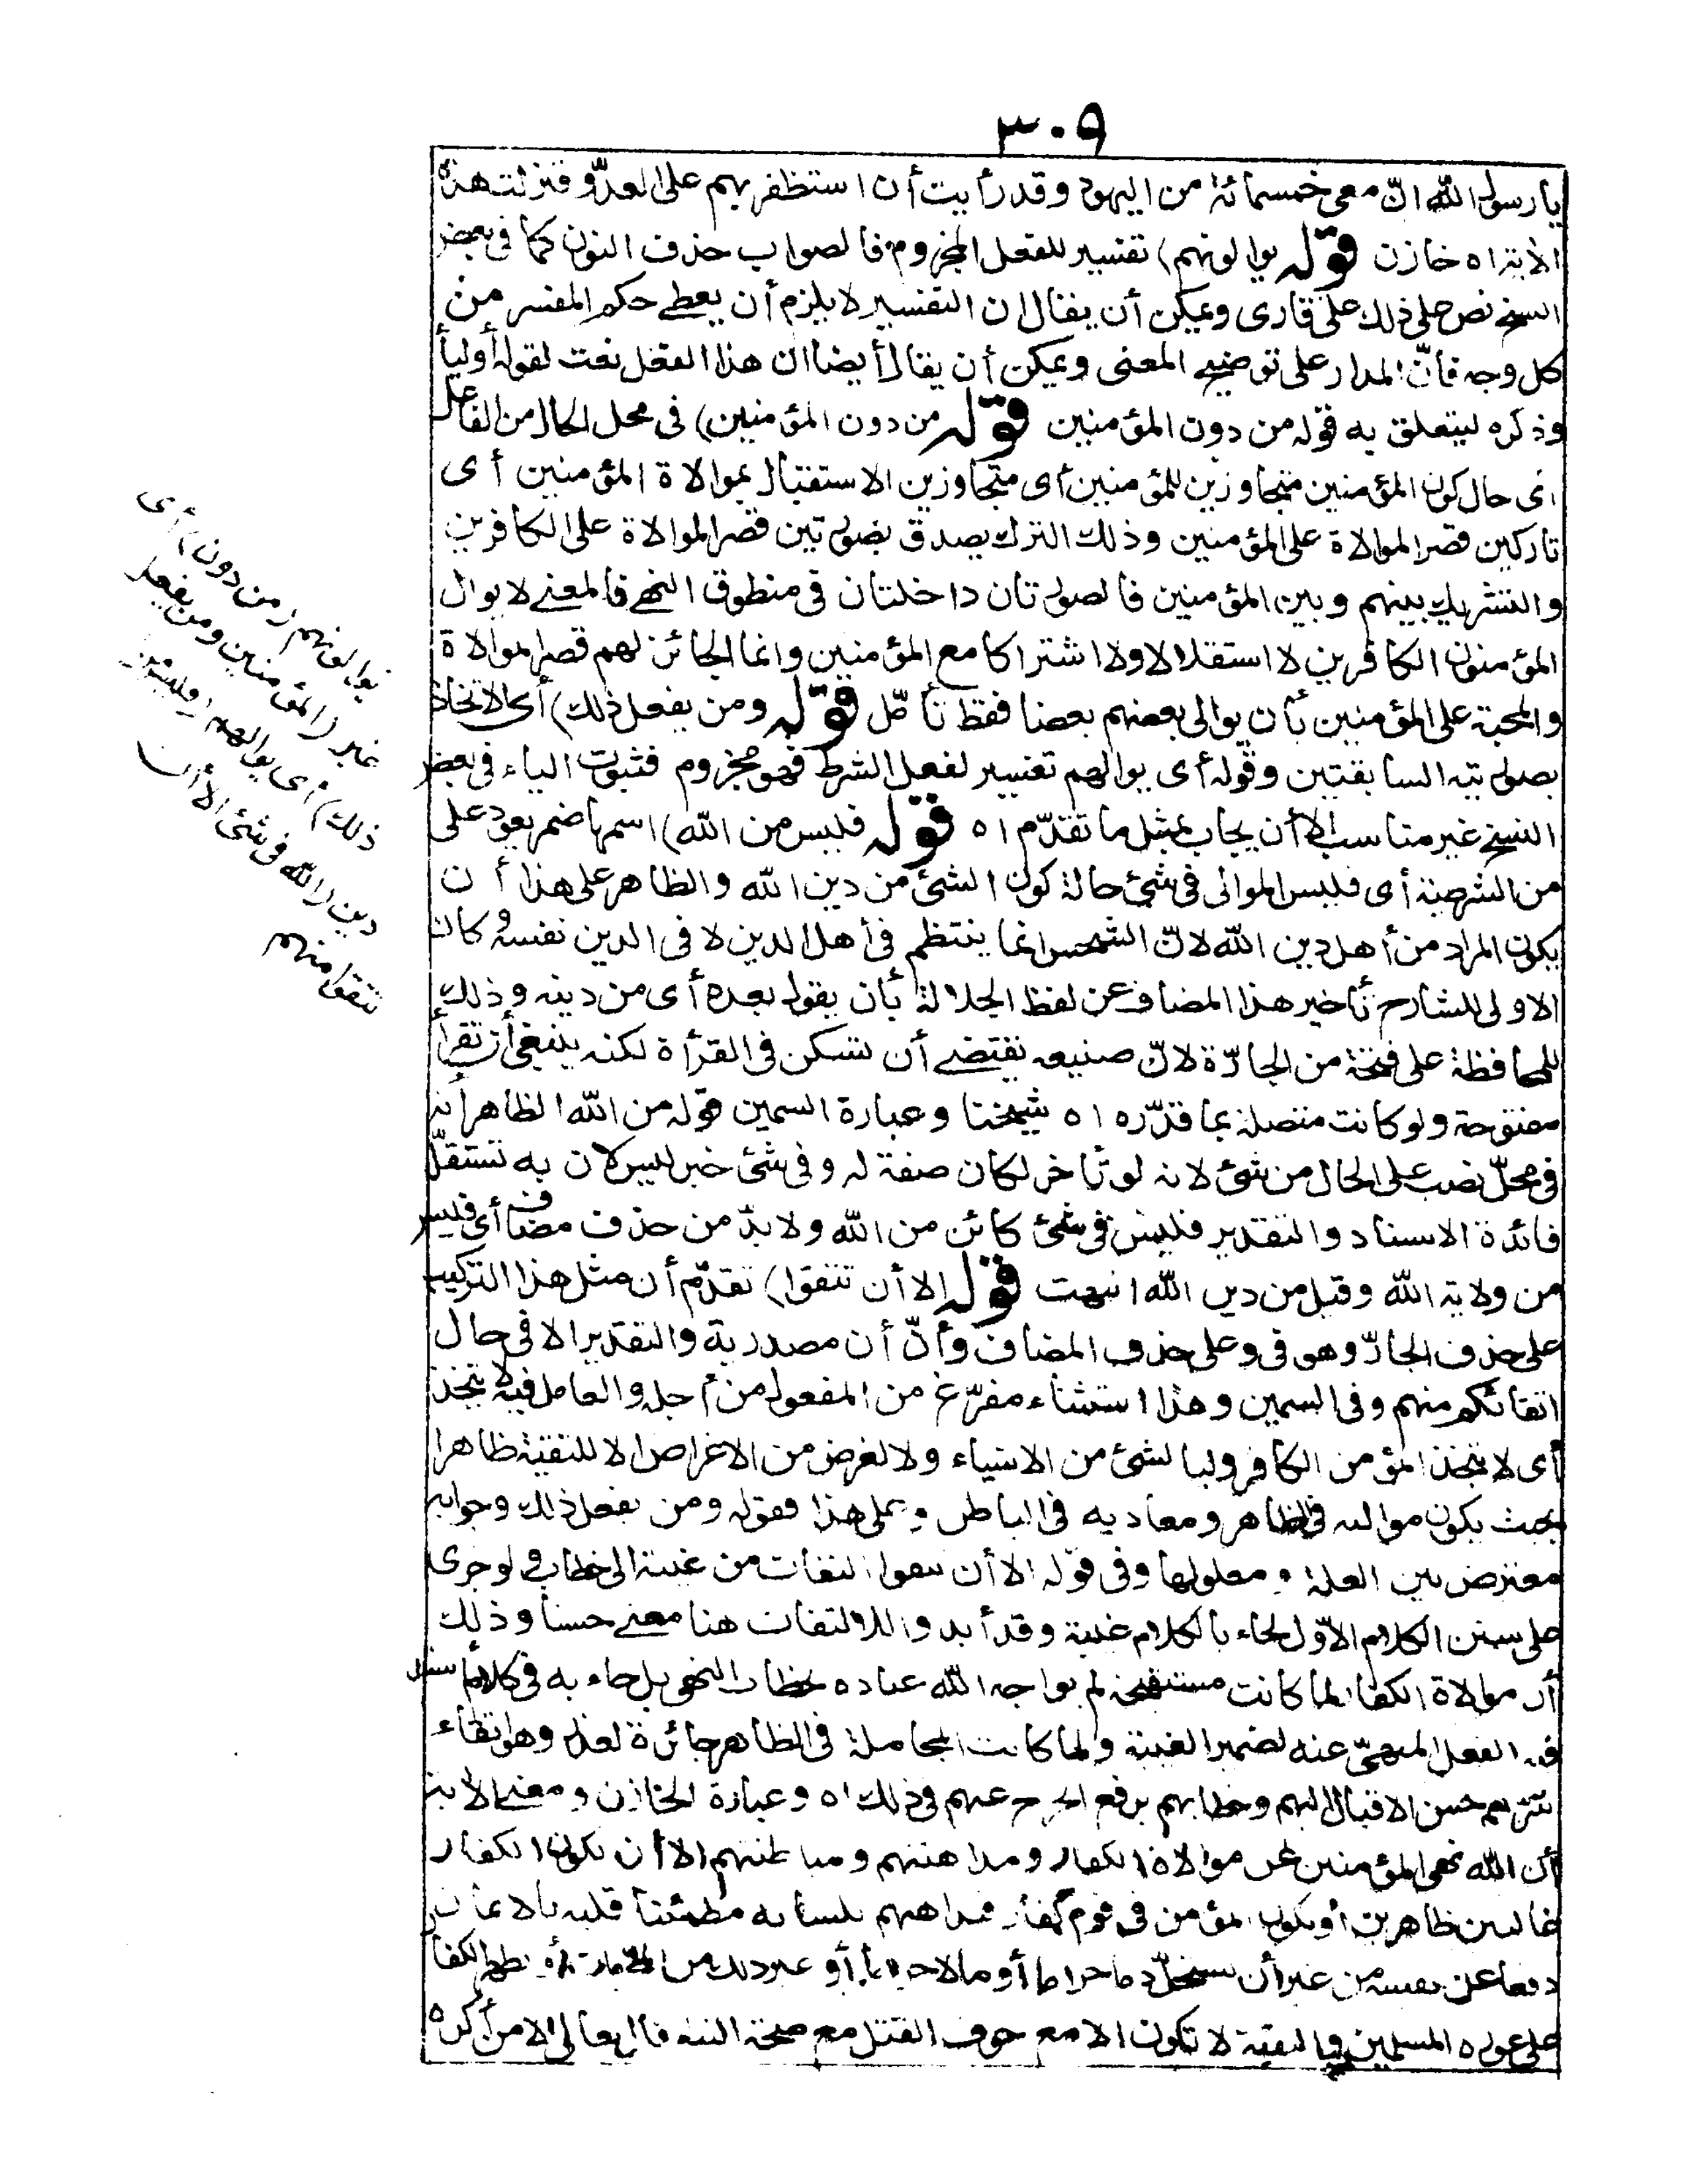 ٣٠٩
يا رسول الله انّ معى خمسمائة من اليهود وقد رأيت أن استظفر بهم على العدوّ فنزلت هذه
الآية اه خازن قوله يوالونهم) تفسير للفعل المجزوم فالصواب حذف النون كما فى بعض
النسخ نص على ذلك على قارى ويمكن أن يقال ان التفسير لا يلزم أن يعطى حكم المفسر من
كل وجه فانّ المدار على توضيح المعنى ويمكن أن يقال أيضا ان هذا الفعل نعت لقوله أولياء
وذكره ليتعلق به قوله من دون المؤمنين قوله من دون المؤمنين) فى محل الحال من الفاعل
أى حال كون المؤمنين متجاوزين للمؤمنين أى متجاوزين الاستقبال بموالاة المؤمنين أى
تاركين قصر الموالاة على المؤمنين وذلك الترك يصدق بصورتين قصر الموالاة على الكافرين
والتشريك بينهم وبين المؤمنين فالصورتان داخلتان فى منطوق النهى فالمعنى لا يوال
المؤمنون الكافرين لا استقلالا ولا اشتراكا مع المؤمنين وانما الجائز لهم قصر الموالاة
والمحبة على المؤمنين بأن يوالى بعضهم بعضا فقط تأمّل قوله ومن يفعل ذلك) أى الاتخاذ
بصورتيه السابقتين وقوله أى يوالهم تفسير لفعل الشرط فهو مجزوم فثبوت الياء فى بعض
النسخ غير مناسب الا أن يجاب بمثل ما تقدّم اه قوله فليس من الله) اسمها ضمير يعود على
من الشرطية أى فليس الموالى فى شئ حالة كون الشئ من دين الله والظاهر على هذا أن
يكون المراد من أهل دين الله لانّ الشخص انما ينتظم فى أهل الدين لا فى الدين نفسه وكان
الاولى للشارح تأخير هذا المضاف عن لفظ الجلالة بأن يقول بعده أى من دينه وذلك
للمحافظة على فتحة من الجارّة لانّ صنيعه يقتضى أن تسكن فى القرأة لكنه ينبغى أن تقرأ
مفتوحة ولو كانت متصلة بما قدّره اه شيخنا وعبارة السمين قوله من الله الظاهر أنه
فى محلّ نصب على الحال من شئ لانه لو تأخر لكان صفة له وفى شئ خبر ليس لان به تستقلّ
فائدة الاسناد والتقدير فليس فى شئ كائن من الله ولا بدّ من حذف مضاف أى فليس
من ولاية الله وقيل من دين الله انتهت قوله الا أن تتقوا) تقدّم أن مثل هذا التركيب
على حذف الجارّ وهو فى وعلى حذف المضاف وأنّ أن مصدرية والتقدير الا فى حال
اتقائكم منهم وفى السمين وهذا استثناء مفرّغ من المفعول من أجله والعامل فيه لا يتخذ
أى لا يتخذ المؤمن الكافر وليا لشئ من الاشياء ولا لغرض من الاغراض الا للتقية ظاهرا
بحيث يكون مواليه فى الظاهر ومعاديه فى الباطن وعلى هذا فقوله ومن يفعل ذلك وجوابه
معترض بين العلة ومعلولها وفى قوله الا أن تتقوا التفات من غيبة الى خطاب ولو جرى
على سنن الكلام الاوّل لجاء بالكلام غيبة وقد أبدوا للالتفات هنا معنى حسنا وذلك
أن موالاة الكفار لما كانت مستقبحة لم يواجه الله عباده بخطاب النهى بل جاء به فى كلام أسند
فيه الفعل المنهىّ عنه لضمير الغيبة ولما كانت المجاملة فى الظاهر جائزة لعذر وهو اتقاء
شرّهم حسن الاقبال اليهم وخطابهم برفع الحرج عنهم فى ذلك اه وعبارة الخازن ومعنى الآية
أن الله نهى المؤمنين عن موالاة الكفار ومداهنتهم ومباطنتهم الا أن يكون الكفار
غالبين ظاهرين أو يكون المؤمن فى قوم كفار فيداهنهم بلسانه مطمئنا قلبه بالايمان
دفعا عن نفسه من غير أن يستحلّ دما حراما أو مالا حراما أو غير ذلك من يظهر الكفار
على عورة المسلمين والتقية لا تكون الا مع خوف القتل مع صحة النية قال تعالى الا من أكره
يوالونهم (من دون) أى
غير (المؤمنين ومن يفعل
ذلك) أى يوالهم (فليس من
دين (الله فى شئ الا أن
تتقوا منهم